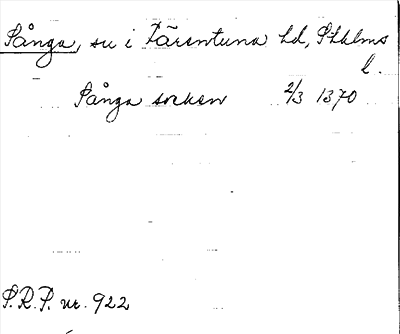 Sånga, sn i Färentuna hd, Sthlms
l.
Sånga socken 2/3 1370
S.R.P. nr. 922